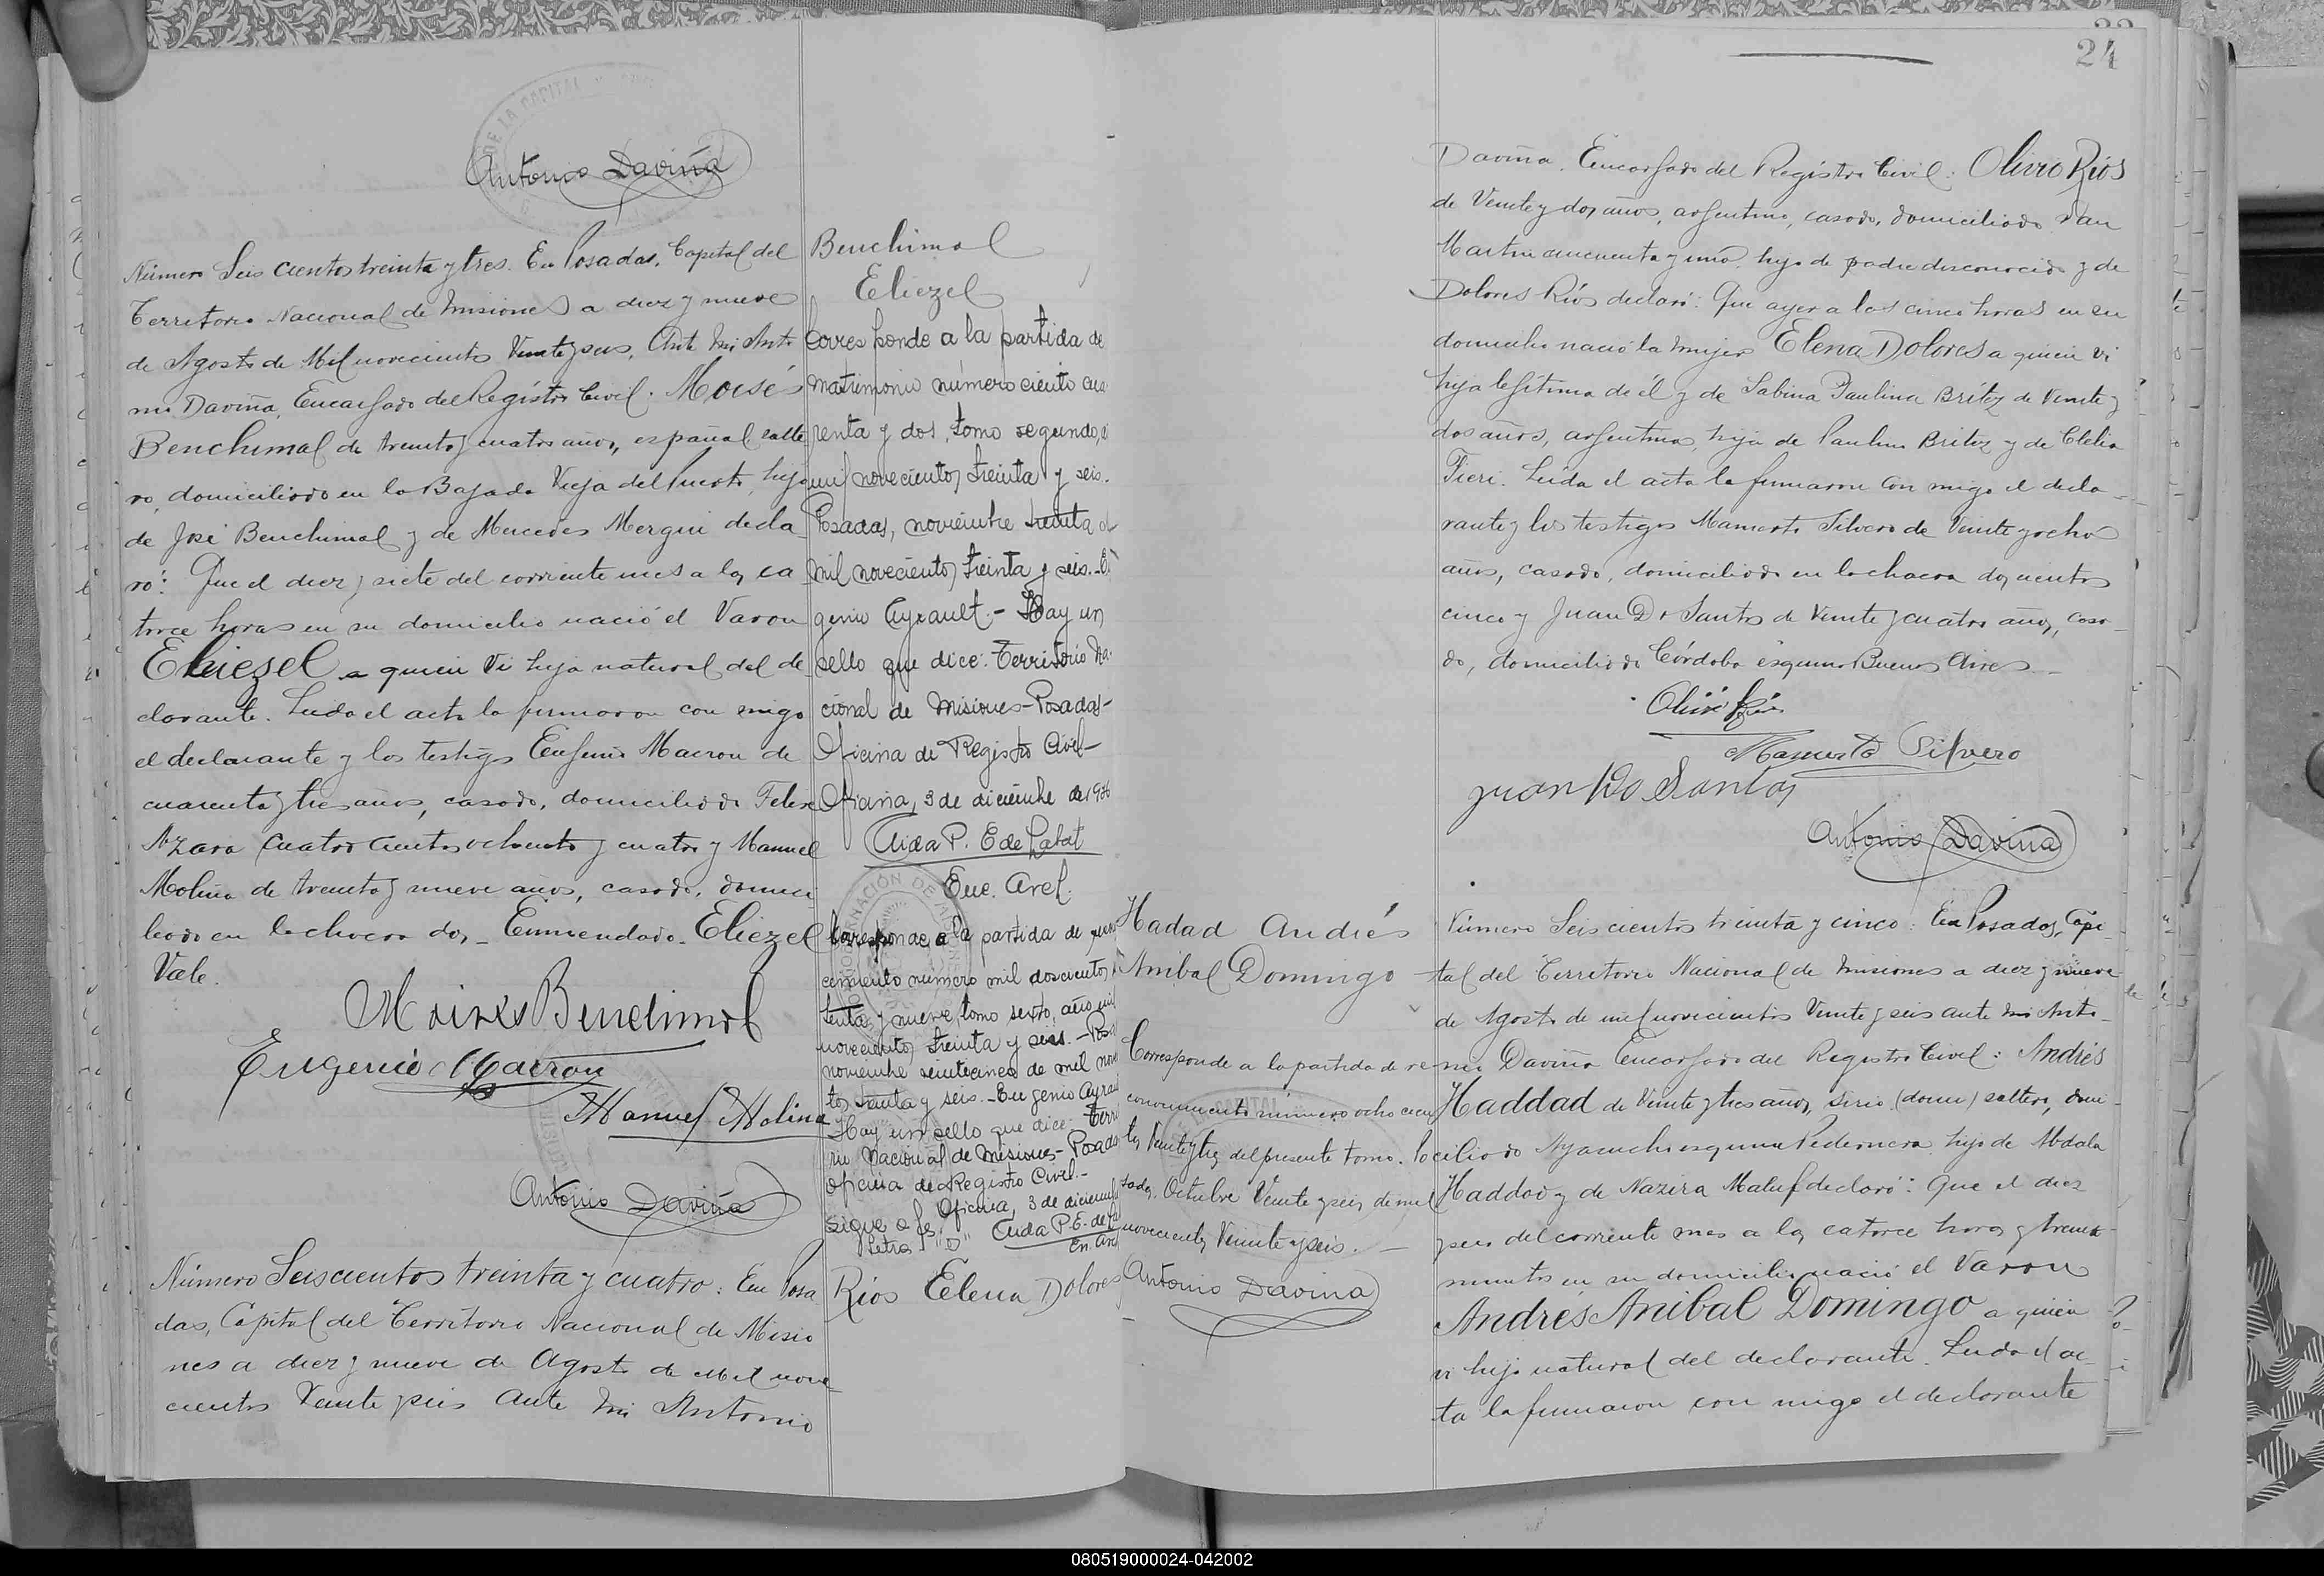 Antonio Daviña
Número Seis cientos treinta y tres. En Posadas, Capital del
Territorio Nacional de Misiones a diez y nueve
de Agosto de Mil novecientos Veinte y seis, Ante Mi Anto
nio Daviña, Encargado del Registro Civil. Moisés
Benchimal de treinta y cuatro años, español solte
ro, domiciliado en la Bajada Vieja del Puerto, hijo
de José Benchimal y de Mercedes Mergui decla
ró: Que el diez y siete del corriente mes a las ca
torce horas en su domicilio nació el Varon
Eliezel a quien Vi hijo natural del de
clarante. Leida el acta la firmaron con migo
el declarante y los testigos Eugenio Macron de
cuarenta y tres años, casado, domiciliado Felix
Azara cuatro cientos ochenta y cuatro y Manuel
Molina de treinta y nueve años, casado, domici
liado en la chacra dos_ Enmendado_ Eliezel
Vale.
Moises Benchimol
Eugenio Macron
Manuel Molina
Antonio Daviña
Número Seiscientos treinta y cuatro: En Posa
das, Capital del Territorio Nacional de Misio
nes a diez y nueve de Agosto de Mil nove
cientos Veinte y seis Ante Mi Antonio
Benchimol
Eliezel
Corresponde a la partida de
matrimonio número ciento cua
renta y dos, tomo segundo,
mil novecientos treinta y seis.
Posadas, noviembre treinta d
mil novecientos treinta y seis.- Eu
genio Ayrault.- Hay un
sello que dice: Territorio Na
cional de Misiones-Posadas-
Oficina de Registro Civil-
Oficina, 3 de diciembre de 1936
Aida P. E de Labat
Enc. Arch.
Corresponde a la partida de
cimiento número mil doscientos
tenta y nueve, tomo sexto, año mil
novecientos treinta y seis.- Posa
noviembre veinticinco de mil nove
tos treinta y seis.- Eugenio Ayrau
Hay un sello que dice: Terri
rio Nacional de Misiones- Posadas
Oficina de Registro Civil.-
Oficina, 3 de diciembre
sigue a fs.
Letra "B" Aida P. E. de La
En. Arch
Rios Elena Dolores
24
Daviña. Encargado del Registro Civil: Olivio Rios
de Veinte y dos años, argentino, casado, domiciliado San
Martin cincuenta y uno, hijo de padre desconocido y de
Dolores Ríos declaró: Que ayer a las cinco horas en su
domicilio nació la mujer Elena Dolores a quien vi
hija legítima de él y de Sabina Paulina Brítez de Veinte y
dos años, argentina, hija de Paulino Britez y de Clelia
Fieri. Leída el acta la firmaron con migo el decla_
rante y los testigos Mamerto Silvero de Veinte y ocho
años, casado, domiciliado en la chacra doscientos
cinco y Juan Do Santos de Veinte y cuatro años, casa_
do, domiciliado Córdoba esquina Buenos Aires_
Olivio Ríos
Mamerto Silvero
Juan Do Santos
Antonio Daviña
Hadad Andrés
Anibal Domingo
Corresponde a la partida de re
conocimiento número ocho cien
tos Veinte y tres del presente tomo. Po
sadas. Octubre Veinte y seis de mil
novecientos Veinte y seis. _
Antonio Daviña
Número Seis cientos treinta y cinco: En Posadas, Capi_
tal del Territorio Nacional de Misiones a diez y nueve
de Agosto de mil novecientos Veinte y seis ante mi Anto_
nio Daviña Encargado del Registro Civil: Andrés
Haddad de Veinte y tres años, sirio (domi) soltero, domi_
ciliado Ayacucho esquina Pedernera hijo de Abdala
Haddad y de Nazira Maluf declaró: Que el diez
y seis del corriente mes a las catorce horas y treinta
minutos en su domicilio nació el Varon
Andrés Anibal Domingo a quien
vi hijo natural del declarante. Leida el ac_
ta la firmaron con migo el declarante
080519000024-042002